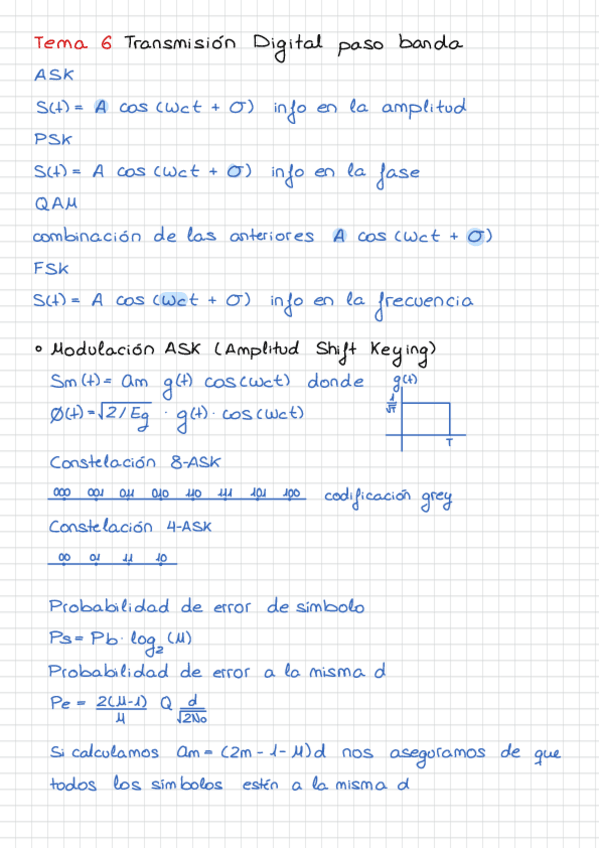 Tema 6 Transmisión Digital paso banda
ASK
S(t) = A cos (wct + σ) info en la amplitud
PSK
S(t) = A cos (wct + σ) info en la fase
QAM
combinación de las anteriores A cos (wct + σ)
FSK
S(t) = A cos (wct + σ) info en la frecuencia
• Modulación ASK (Amplitud Shift Keying)
Sm(t) = am g(t) cos(wct) donde g(t)
Ø(t) = √2/Eg · g(t) · cos(wct) 1/√T T
Constelación 8-ASK
000 001 011 010 110 111 101 100 codificación grey
Constelación 4-ASK
00 01 11 10
Probabilidad de error de simbolo
Ps = Pb · log₂ (M)
Probabilidad de error a la misma d
Pe = 2(M-1)/M Q d/√2No
Si calculamos am = (2m - 1 - M)d nos aseguramos de que
todos los simbolos estén a la misma d